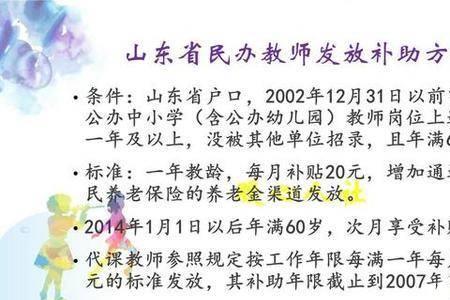 山东省民办教师发放补助方
• 条件：山东省户口，2002年12月31日以前
公办中小学（含公办幼儿园）教师岗位上
一年及以上，没被其他单位招录，且年满6
• 标准：一年教龄，每月补贴20元，增加通
民养老保险的养老金渠道发放。
• 2014年1月1日以后年满60岁，次月享受补
• 代课教师参照规定按工作年限每满一年每
元的标准发放，其补助年限截止到2007年